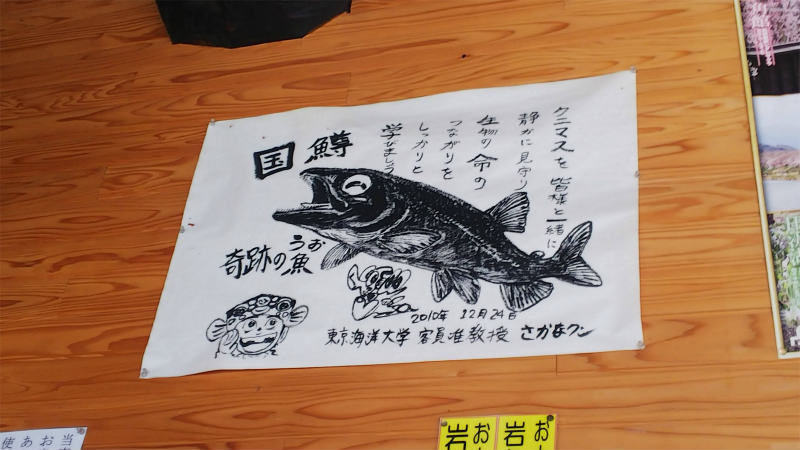 クニマスを 皆様と一緒に
静かに見守り
生物の 命の
つながりを
しっかりと
学びましょう
国鱒
奇跡の魚
うお
2010年 12月24日
東京海洋大学 客員准教授 さかなクン